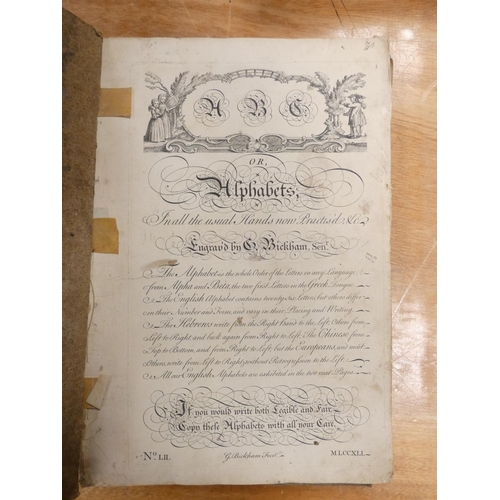 A B C
OR,
Alphabets,
In all the usual Hands now Practis'd &c.
Engrav'd by G. Bickham, Senr.
The Alphabet is the whole Order of the Letters in any Language
from Alpha and Beta, the two first Letters in the Greek Tongue
The English Alphabet contains twenty six Letters, but others differ
in their Number and Form, and vary in their Placing and Writing.
The Hebrews write from the Right Hand to the Left; Others from
Left to Right and back again from Right to Left. The Chinese from
Top to Bottom, and from Right to Left; but the Europeans, and most
Others, write from Left to Right, without Retrogression to the Left.
All our English Alphabets are exhibited in the two next Pages.
If you would write both Legible and Fair
Copy these Alphabets with all your Care.
No. LII.
G. Bickham Fecit
MLCCXLI